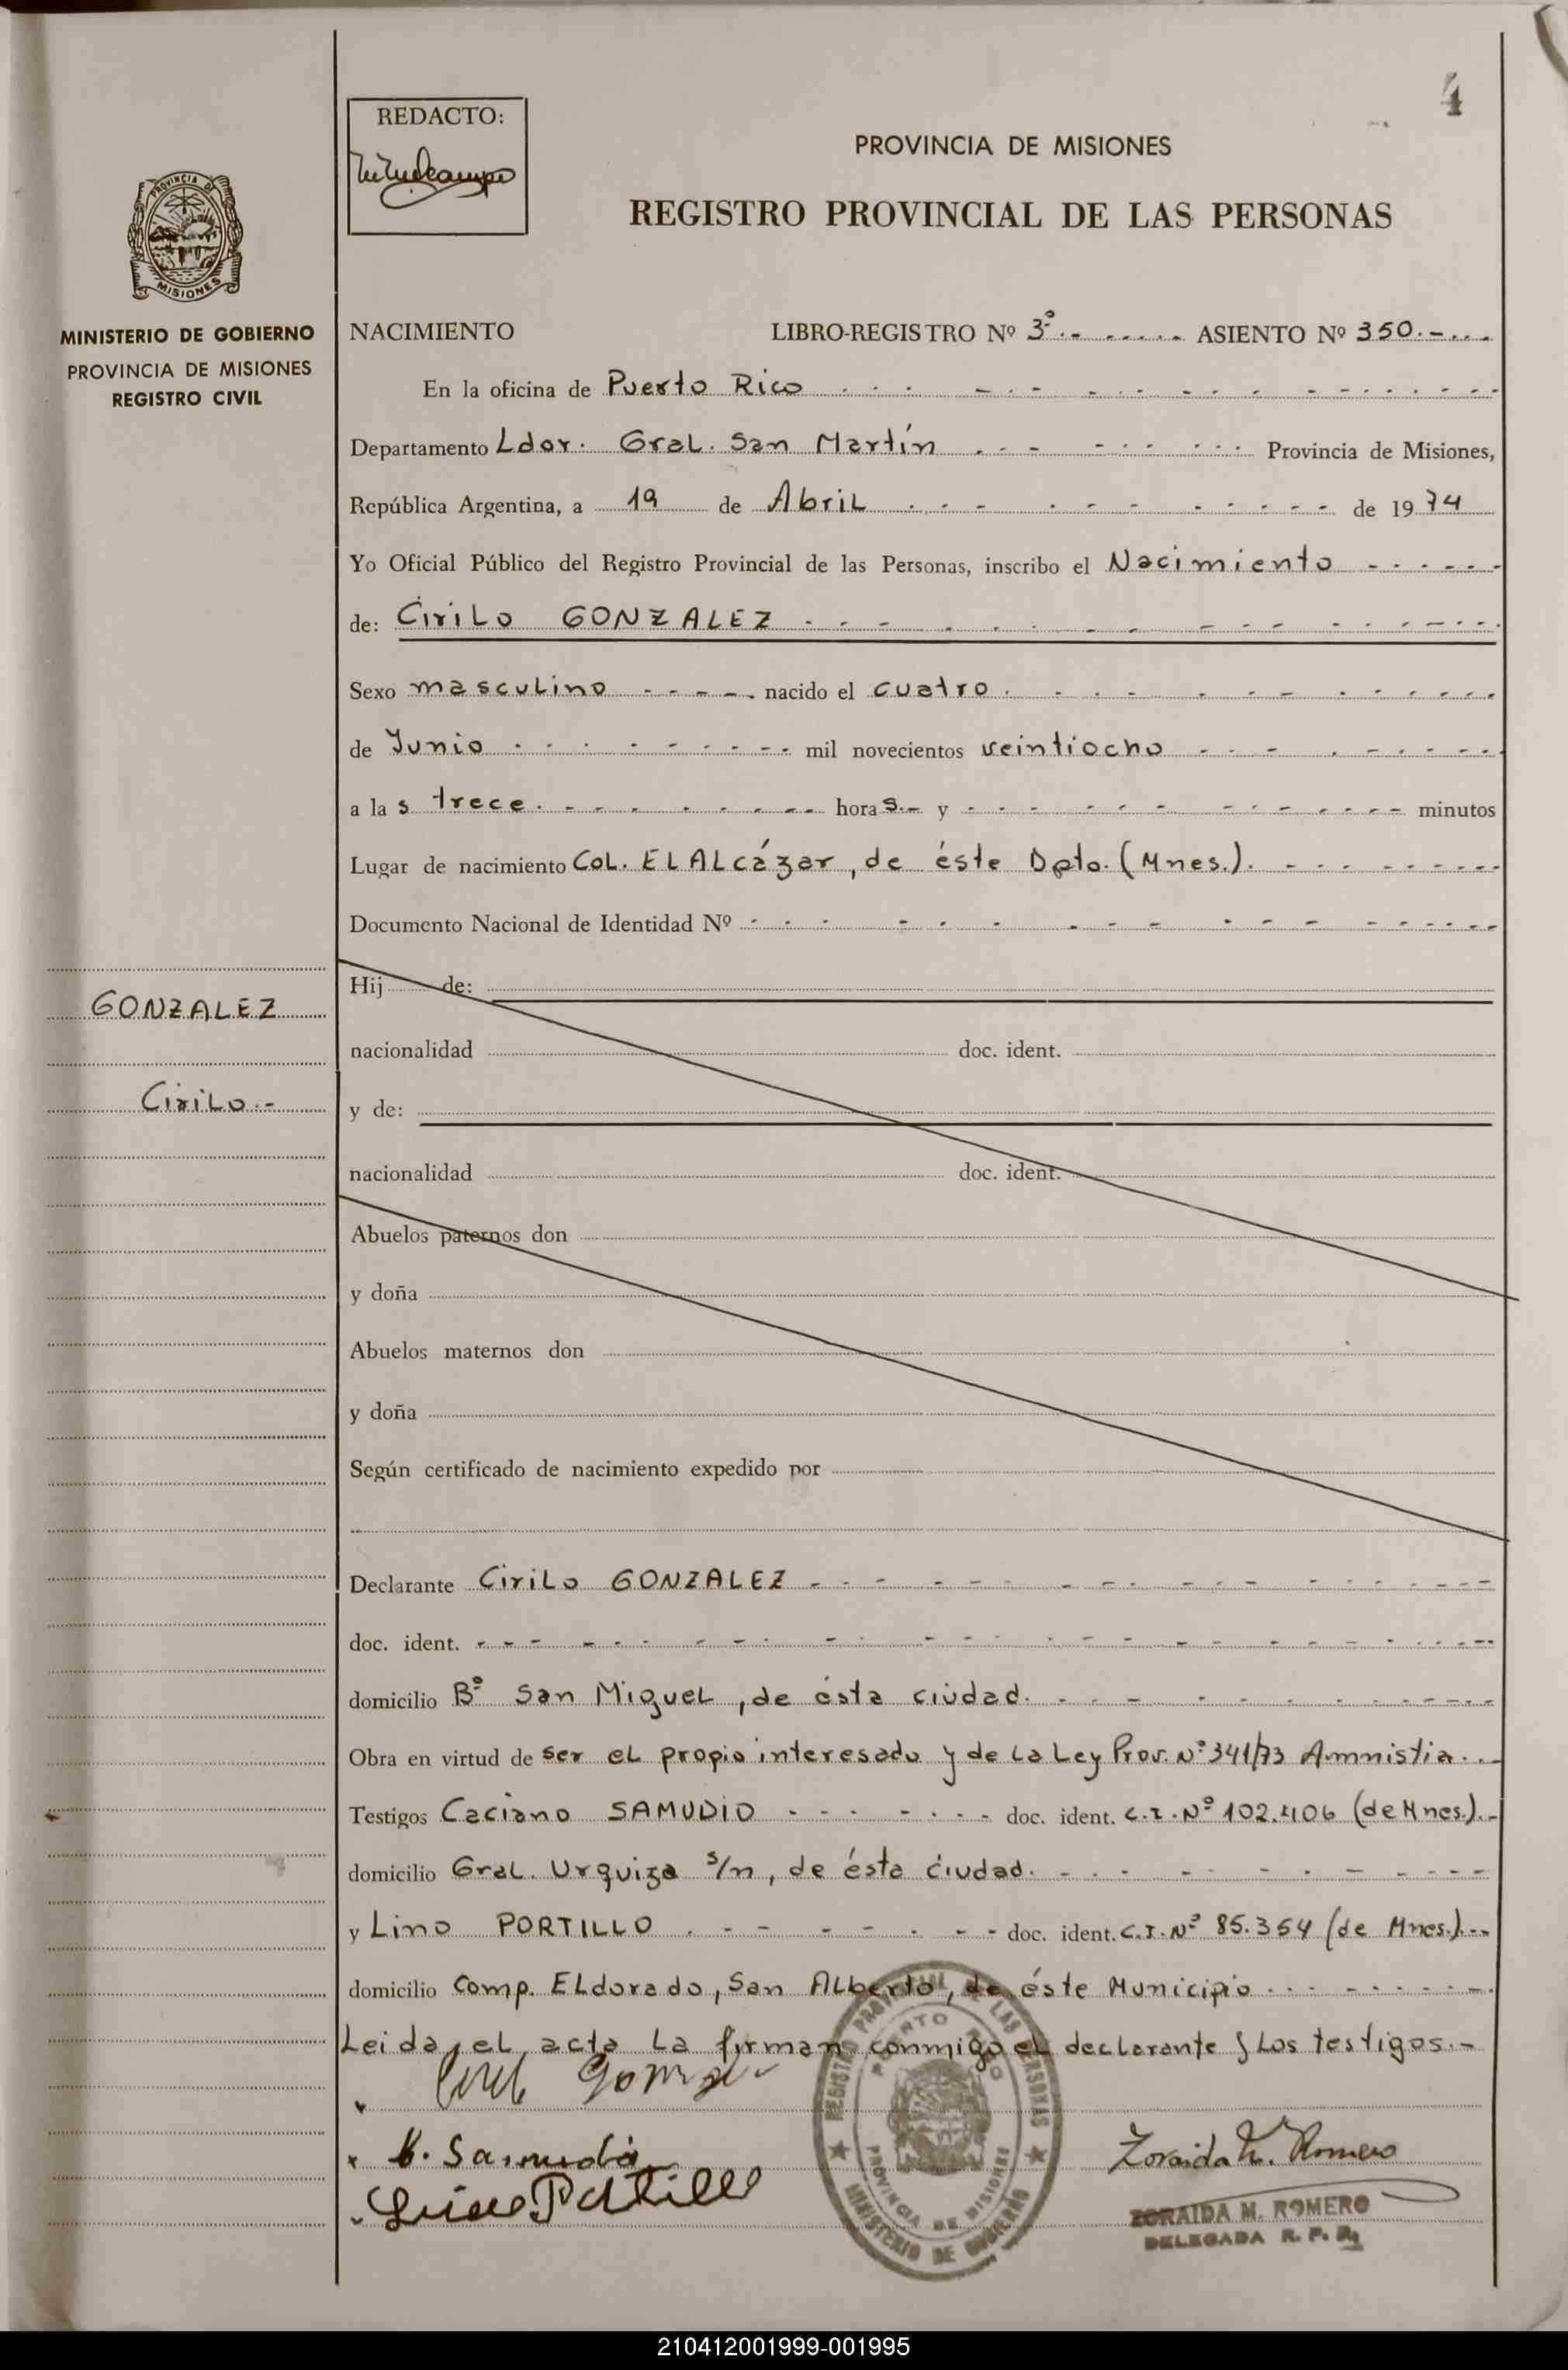 4
REDACTO:
PROVINCIA DE MISIONES
REGISTRO PROVINCIAL DE LAS PERSONAS
PROVINCIA DE
MISIONES
MINISTERIO DE GOBIERNO
PROVINCIA DE MISIONES
REGISTRO CIVIL
NACIMIENTO LIBRO-REGISTRO Nº 3º.- ASIENTO Nº 350.-
En la oficina de Puerto Rico
Departamento Ldor. Gral. San Martín Provincia de Misiones,
República Argentina, a 19 de Abril de 1974
Yo Oficial Público del Registro Provincial de las Personas, inscribo el Nacimiento
de: Cirilo GONZALEZ
Sexo masculino nacido el cuatro
de Junio mil novecientos veintiocho
a las trece horas.- y minutos
Lugar de nacimiento Col. El Alcázar, de éste Dpto. (Mnes.).
Documento Nacional de Identidad Nº
Hij de:
GONZALEZ
nacionalidad doc. ident.
Cirilo.-
y de:
nacionalidad doc. ident.
Abuelos paternos don
y doña
Abuelos maternos don
y doña
Según certificado de nacimiento expedido por
Declarante Cirilo GONZALEZ
doc. ident.
domicilio Bº San Miguel, de ésta ciudad.
Obra en virtud de ser el propio interesado y de la Ley Prov. Nº 341/73 Amnistia.
Testigos Caciano SAMUDIO doc. ident. C.I. Nº 102.406 (de Mnes.).-
domicilio Gral. Urquiza s/n, de ésta ciudad.
y Lino PORTILLO doc. ident. C.I. Nº 85.354 (de Mnes.).-
domicilio Comp. Eldorado, San Alberto, de éste Municipio
Leida el acta la firman conmigo el declarante y los testigos.-
C. Samudio
Lino Portillo
Zoraida M. Romero
ZORAIDA M. ROMERO
DELEGADA R. P. P.
REGISTRO PROVINCIAL DE LAS PERSONAS
PUERTO RICO
PROVINCIA DE MISIONES
MINISTERIO DE GOBIERNO
210412001999-001995